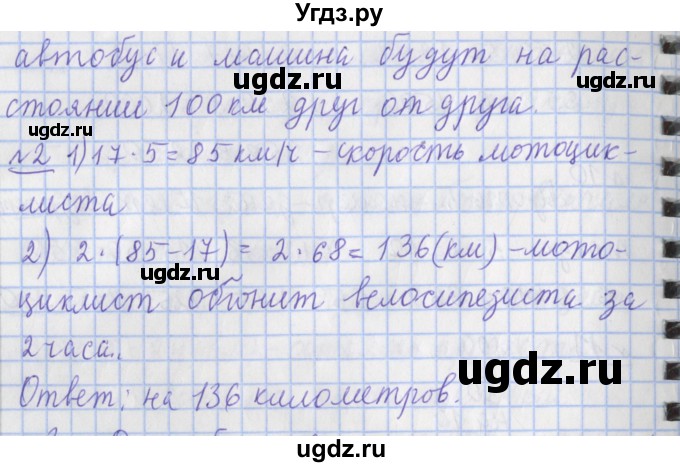 Угдз.ру
автобус и машина будут на рас-
стоянии 100 км друг от друга.
№2 1) 17·5=85 км/ч – скорость мотоцик-
листа
2) 2·(85-17)= 2·68= 136(км) – мото-
циклист обгонит велосипедиста за
2 часа.
Ответ: на 136 километров.
ugdz.ru
ugdz.ru
ugdz.ru
ugdz.ru
ugdz.ru
ugdz.ru
ugdz.ru
ugdz.ru